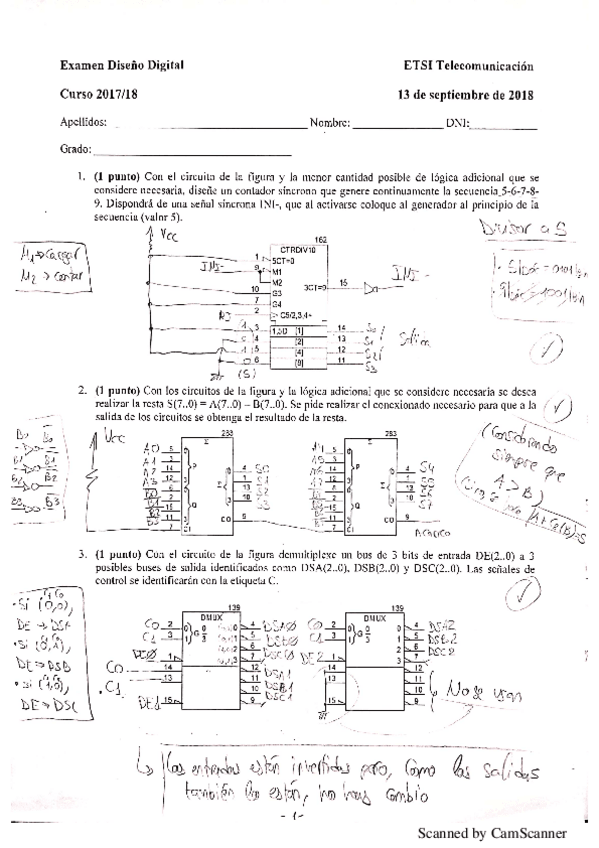 Examen Diseño Digital
ETSI Telecomunicación
Curso 2017/18
13 de septiembre de 2018
Apellidos: Nombre: DNI:
Grado:
1. (1 punto) Con el circuito de la figura y la menor cantidad posible de lógica adicional que se
considere necesaria, diseñe un contador síncrono que genere continuamente la secuencia 5-6-7-8-
9. Dispondrá de una señal síncrona INI-, que al activarse coloque al generador al principio de la
secuencia (valor 5).
Divisor a 5
Vcc
M1 → cargar
M2 → contar
162
CTRDIV10
1 5CT=0
INI- 9 M1
M2
3CT=0 15
INI-
10 G3
7 G4
2 C5/2,3,4+
1 3 1,5D [1] 14 S0
4 [2] 13 S1
1 5 [4] 12 S2
0 6 [8] 11 S3
(5)
2. (1 punto) Con los circuitos de la figura y la lógica adicional que se considere necesaria se desea
realizar la resta S(7..0) = A(7..0) – B(7..0). Se pide realizar el conexionado necesario para que a la
salida de los circuitos se obtenga el resultado de la resta.
Vcc
283
283
Σ
Σ
B0
B1
B2
B3
A0 5
A1 3
A2 14
A3 12
4 S0
1 S1
13 S2
10 S3
4 S4
1 S5
13 S6
10 S7
CI
CO 9
CO 9
Acarreo
(Considerando
siempre que
A>B)
3. (1 punto) Con el circuito de la figura demultiplexe un bus de 3 bits de entrada DE(2..0) a 3
posibles buses de salida identificados como DSA(2..0), DSB(2..0) y DSC(2..0). Las señales de
control se identificarán con la etiqueta C.
C1 C0
• Si (0,0),
DE → DSA
• Si (0,1),
DE → DSB
• Si (1,0),
DE → DSC
139
139
DMUX
DMUX
C0 2
C1 3
DE0 1
C0 14
C1 13
DE1 15
4 DSA0
5 DSB0
6 DSC0
7
12 DSA1
11 DSB1
10 DSC1
9
C0 2
C1 3
DE2 1
14
13
15
4 DSA2
5 DSB2
6 DSC2
7
12
11
10
9
No se usan
Las entradas están invertidas pero, como las salidas
también lo están, no hay cambio
- 1 -
Scanned by CamScanner